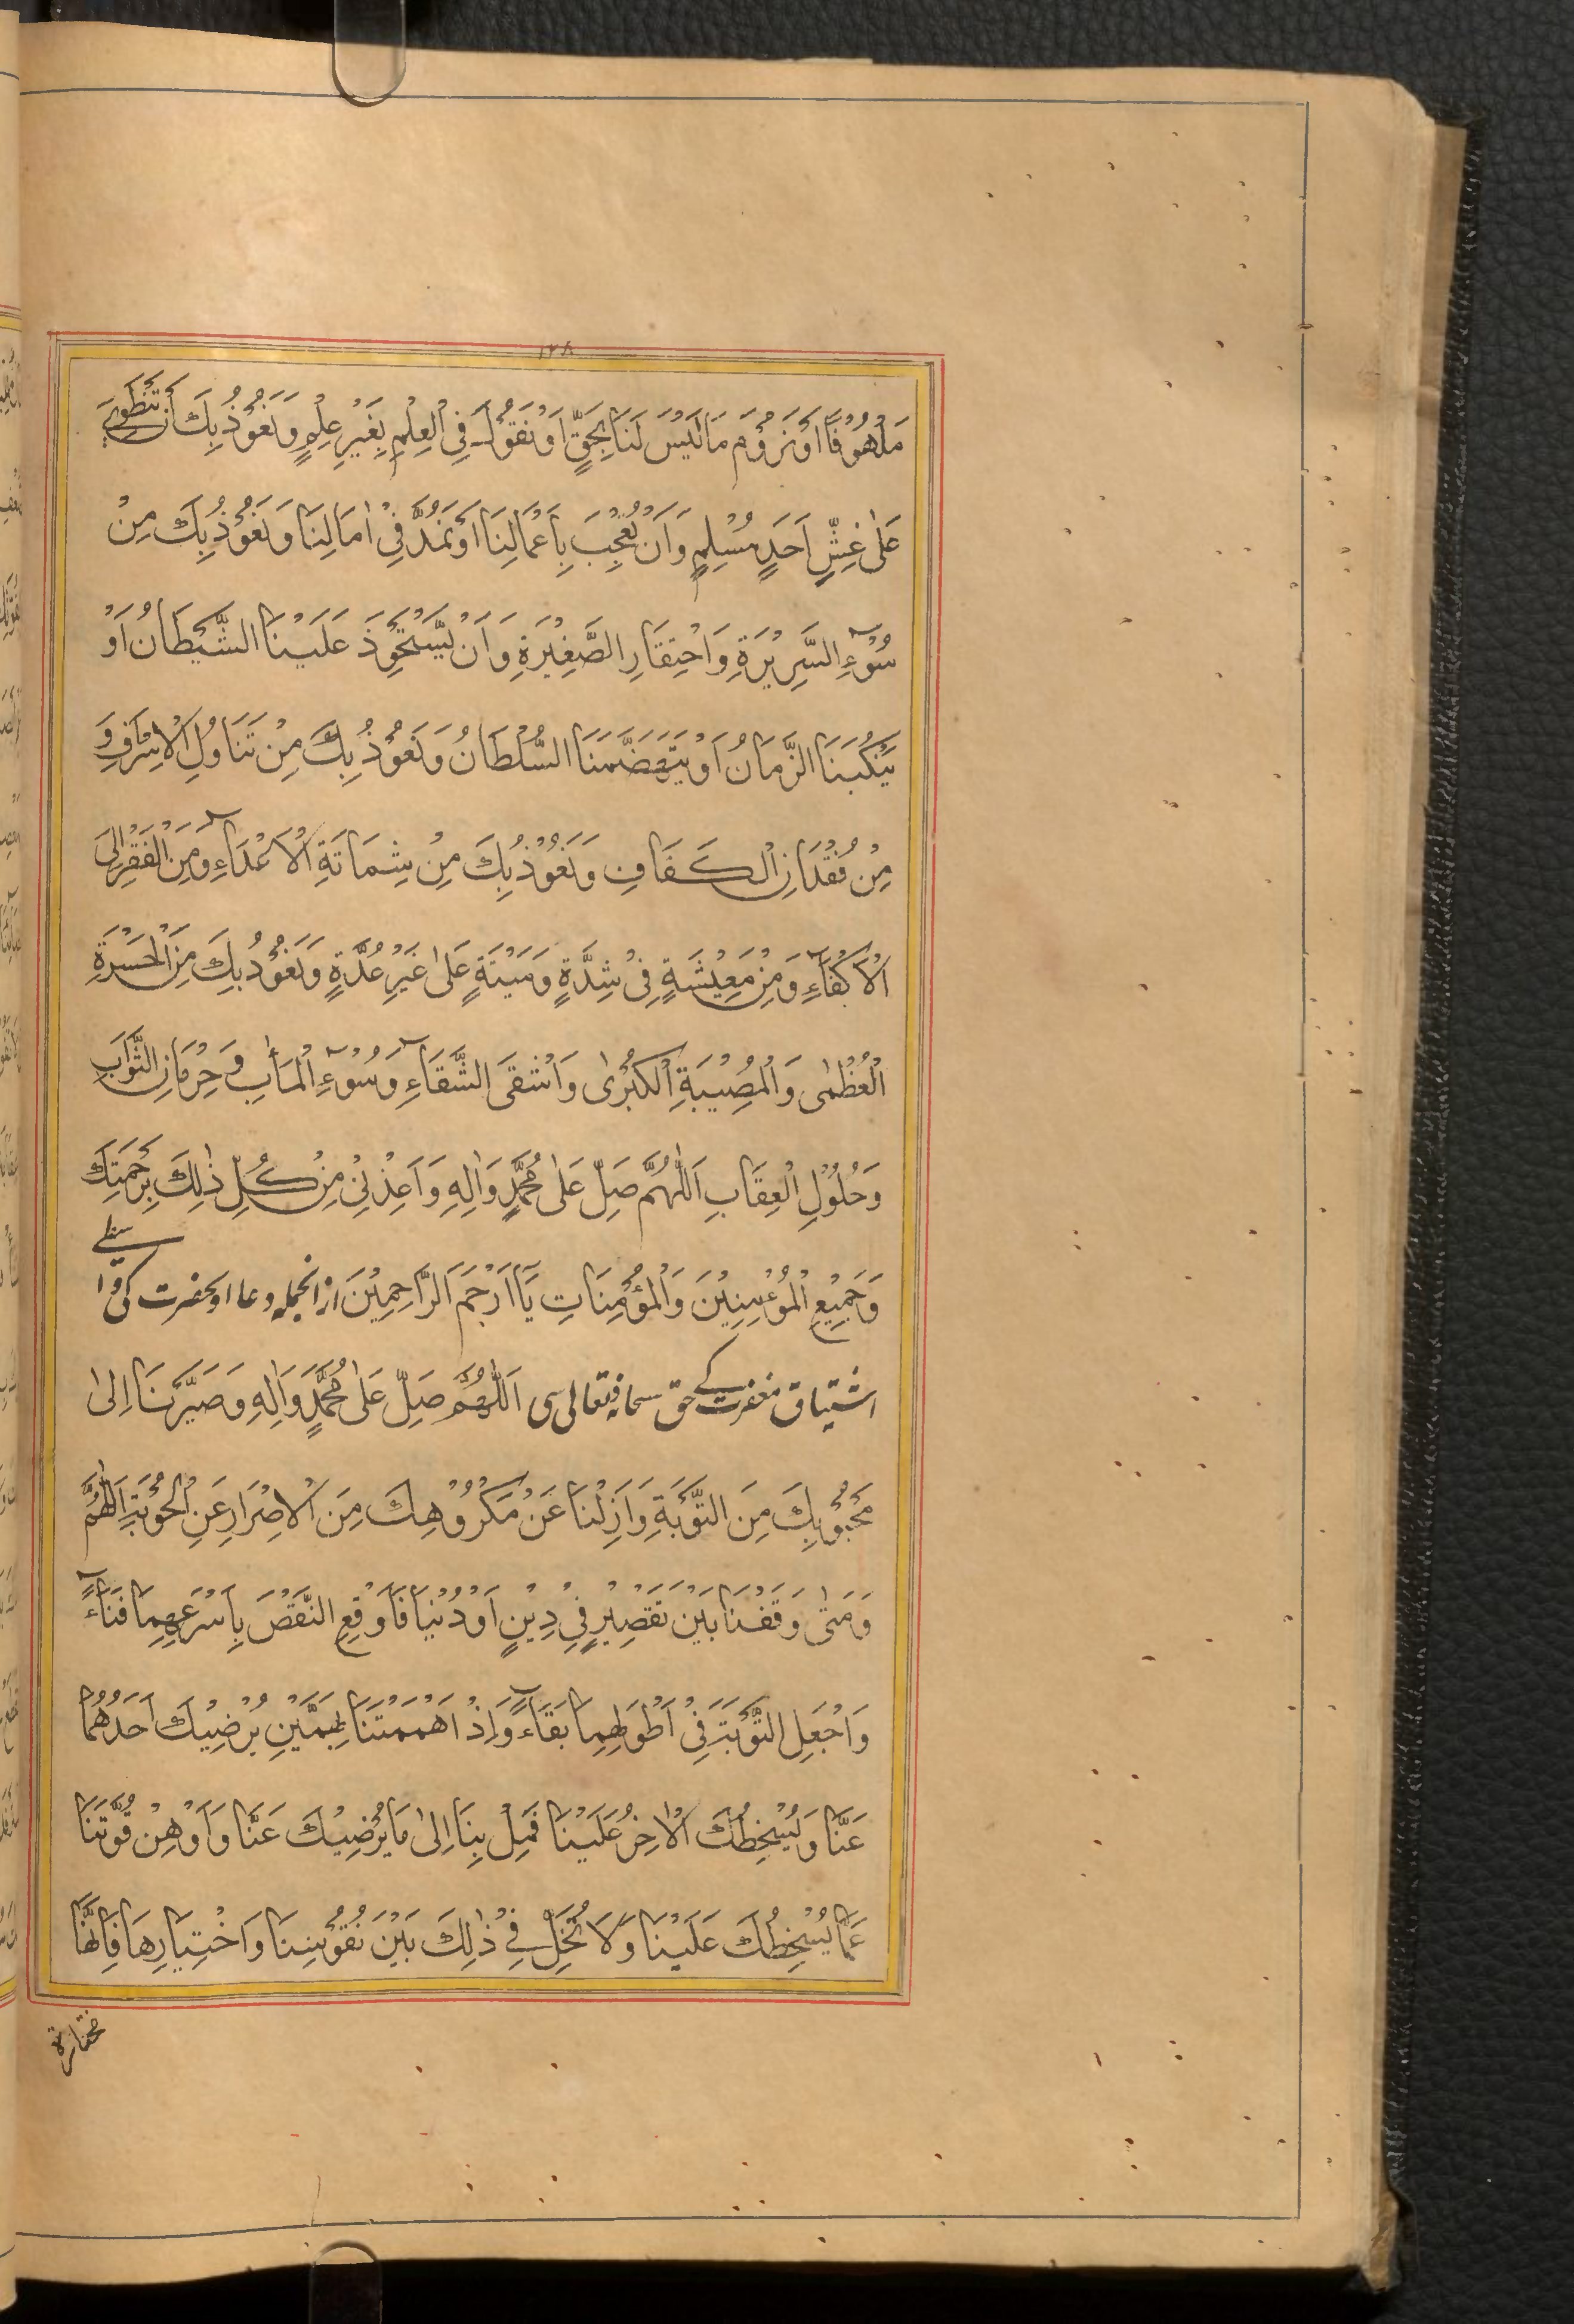 ١٢٨
مَلْهُوْفًا اَوْ نَرُوْمَ مَا لَيْسَ لَنَا بِحَقٍّ اَوْ نَقُوْلَ فِي الْعِلْمِ بِغَيْرِ عِلْمٍ وَنَعُوْذُ بِكَ اَنْ نَنْطَوِيَ
عَلٰى غِشِّ اَحَدٍ مُسْلِمٍ وَاَنْ نُعْجِبَ بِاَعْمَالِنَا اَوْ نَمُدَّ فِيْ اٰمَالِنَا وَنَعُوْذُ بِكَ مِنْ
سُوْۤءِ السَّرِيْرَةِ وَاحْتِقَارِ الصَّغِيْرَةِ وَاَنْ يَّسْتَحْوِذَ عَلَيْنَا الشَّيْطَانُ اَوْ
يَنْكُبَنَا الزَّمَانُ اَوْ يَتَهَضَّمَنَا السُّلْطَانُ وَنَعُوْذُ بِكَ مِنْ تَنَاوُلِ الْاِسْرَافِ وَ
مِنْ فُقْدَانِ الْكَفَافِ وَنَعُوْذُ بِكَ مِنْ شِمَاتَةِ الْاَعْدَاۤءِ وَمِنَ الْفَقْرِ اِلَى
الْاَكْفَاۤءِ وَمِنْ مَعِيْشَةٍ فِيْ شِدَّةٍ وَمَيْتَةٍ عَلٰى غَيْرِ عُدَّةٍ وَنَعُوْذُ بِكَ مِنَ الْحَسْرَةِ
الْعُظْمٰى وَالْمُصِيْبَةِ الْكُبْرٰى وَاَشْقَى الشَّقَاۤءِ وَسُوْۤءِ الْمَاٰبِ وَحِرْمَانِ الثَّوَابِ
وَحُلُوْلِ الْعِقَابِ اَللّٰهُمَّ صَلِّ عَلٰى مُحَمَّدٍ وَاٰلِهِ وَاَعِذْنِيْ مِنْ كُلِّ ذٰلِكَ بِرَحْمَتِكَ
وَجَمِيْعِ الْمُؤْمِنِيْنَ وَالْمُؤْمِنَاتِ يَاۤ اَرْحَمَ الرَّاحِمِيْنَ ازانجمله دعا اونحضرت كى وا سطے
اشتياق مغفرت كے حق سبحانه وتعالى سى اَللّٰهُمَّ صَلِّ عَلٰى مُحَمَّدٍ وَاٰلِهِ وَصَيِّرْنَا اِلٰى
مَحْبُوْبِكَ مِنَ التَّوْبَةِ وَاَزِلْنَا عَنْ مَكْرُوْهِكَ مِنَ الْاِصْرَارِ عَنِ الْحَوْبَةِ اَللّٰهُمَّ
وَمَتٰى وَقَفْنَا بَيْنَ نَقْصَيْنِ فِيْ دِيْنٍ اَوْ دُنْيَا فَاَوْقِعِ النَّقْصَ بِاَسْرَعِهِمَا فَنَاۤءً
وَاجْعَلِ التَّوْبَةَ فِيْ اَطْوَلِهِمَا بَقَاۤءً وَاِذْ اَهْمَمْتَنَا بِهَمَّيْنِ يُرْضِيْكَ اَحَدُهُمَا
عَنَّا وَيُسْخِطُكَ الْاٰخِرُ عَلَيْنَا فَمِلْ بِنَا اِلٰى مَا يُرْضِيْكَ عَنَّا وَاَوْهِنْ قُوَّتَنَا
عَمَّا يُسْخِطُكَ عَلَيْنَا وَلَا تُخَلِّ فِيْ ذٰلِكَ بَيْنَ نُفُوْسِنَا وَاخْتِيَارِهَا فَاِنَّهَا
مختارة